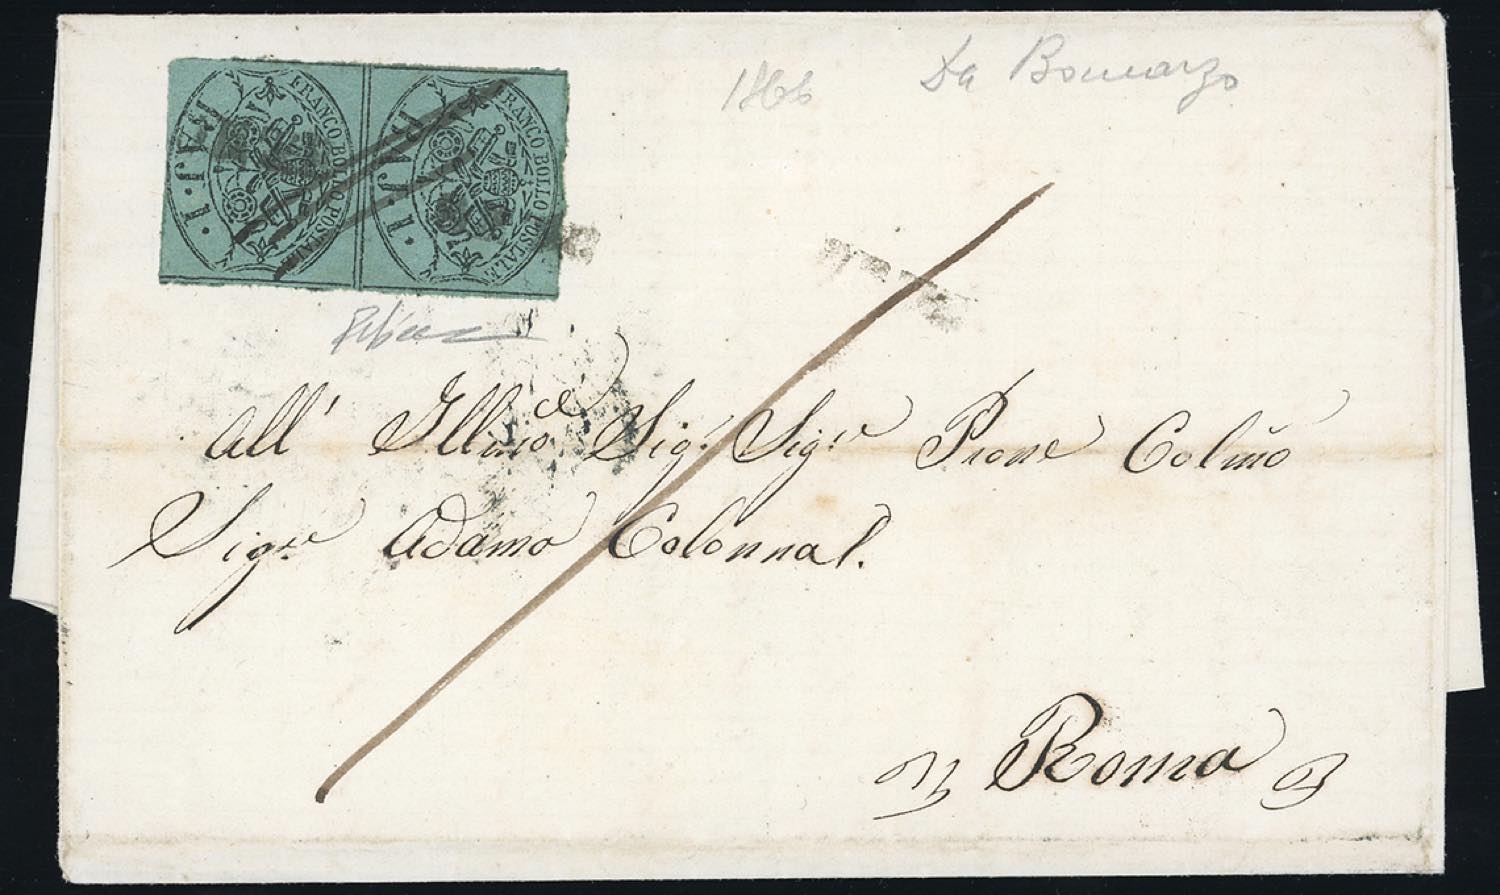 1866 Da Bomarzo
FRANCO BOLLO POSTALE
BAJ. 1.
FRANCO BOLLO POSTALE
BAJ. 1.
All' Illmo Sig. Sigr Prone Colmo
Sigre Adamo Colonna
Roma